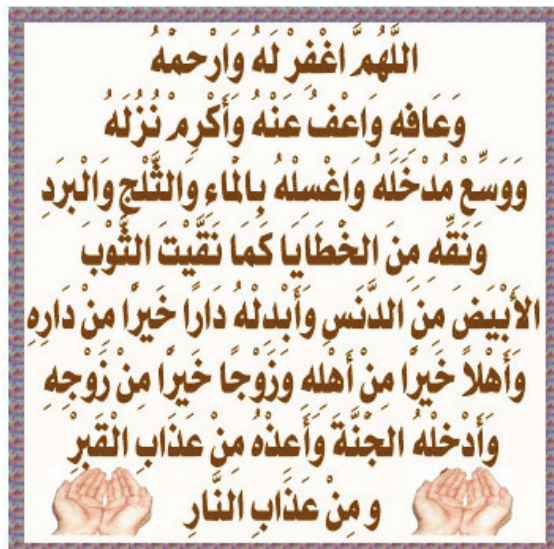 اللَّهُمَّ اغْفِرْ لَهُ وَارْحَمْهُ
وَعَافِهِ وَاعْفُ عَنْهُ وَأَكْرِمْ نُزُلَهُ
وَوَسِّعْ مُدْخَلَهُ وَاغْسِلْهُ بِالْمَاءِ وَالثَّلْجِ وَالْبَرَدِ
وَنَقِّهِ مِنَ الخَطَايَا كَمَا نَقَّيْتَ الثَّوْبَ
الأَبْيَضَ مِنَ الدَّنَسِ وَأَبْدِلْهُ دَارًا خَيْرًا مِنْ دَارِهِ
وَأَهْلاً خَيْرًا مِنْ أَهْلِهِ وَزَوْجًا خَيْرًا مِنْ زَوْجِهِ
وَأَدْخِلْهُ الجَنَّةَ وَأَعِذْهُ مِنْ عَذَابِ الْقَبْرِ
و مِنْ عَذَابِ النَّارِ